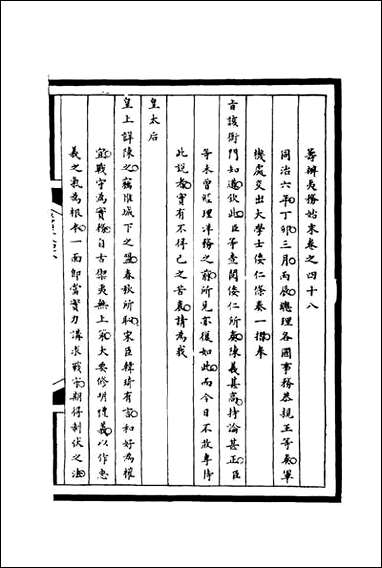 籌辦夷務始末卷之四十八
同治六年丁卯三月丙辰總理各國事務恭親王等奏軍
機處交出大學士倭仁條奏一摺奉
旨該衙門知道欽此臣等查閱倭仁所奏陳義甚高持論甚正臣
等未曾經理洋務之前所見亦復如此而今日不敢專恃
此說者實有不得已之苦衷請為我
皇太后
皇上詳陳之竊惟城下之盟春秋所恥宋臣韓琦有言和好為權
宜戰守為實務自古禦夷無上策大要修明禮義以作忠
義之氣為根本一面即當實力講求戰守期得制伏之法